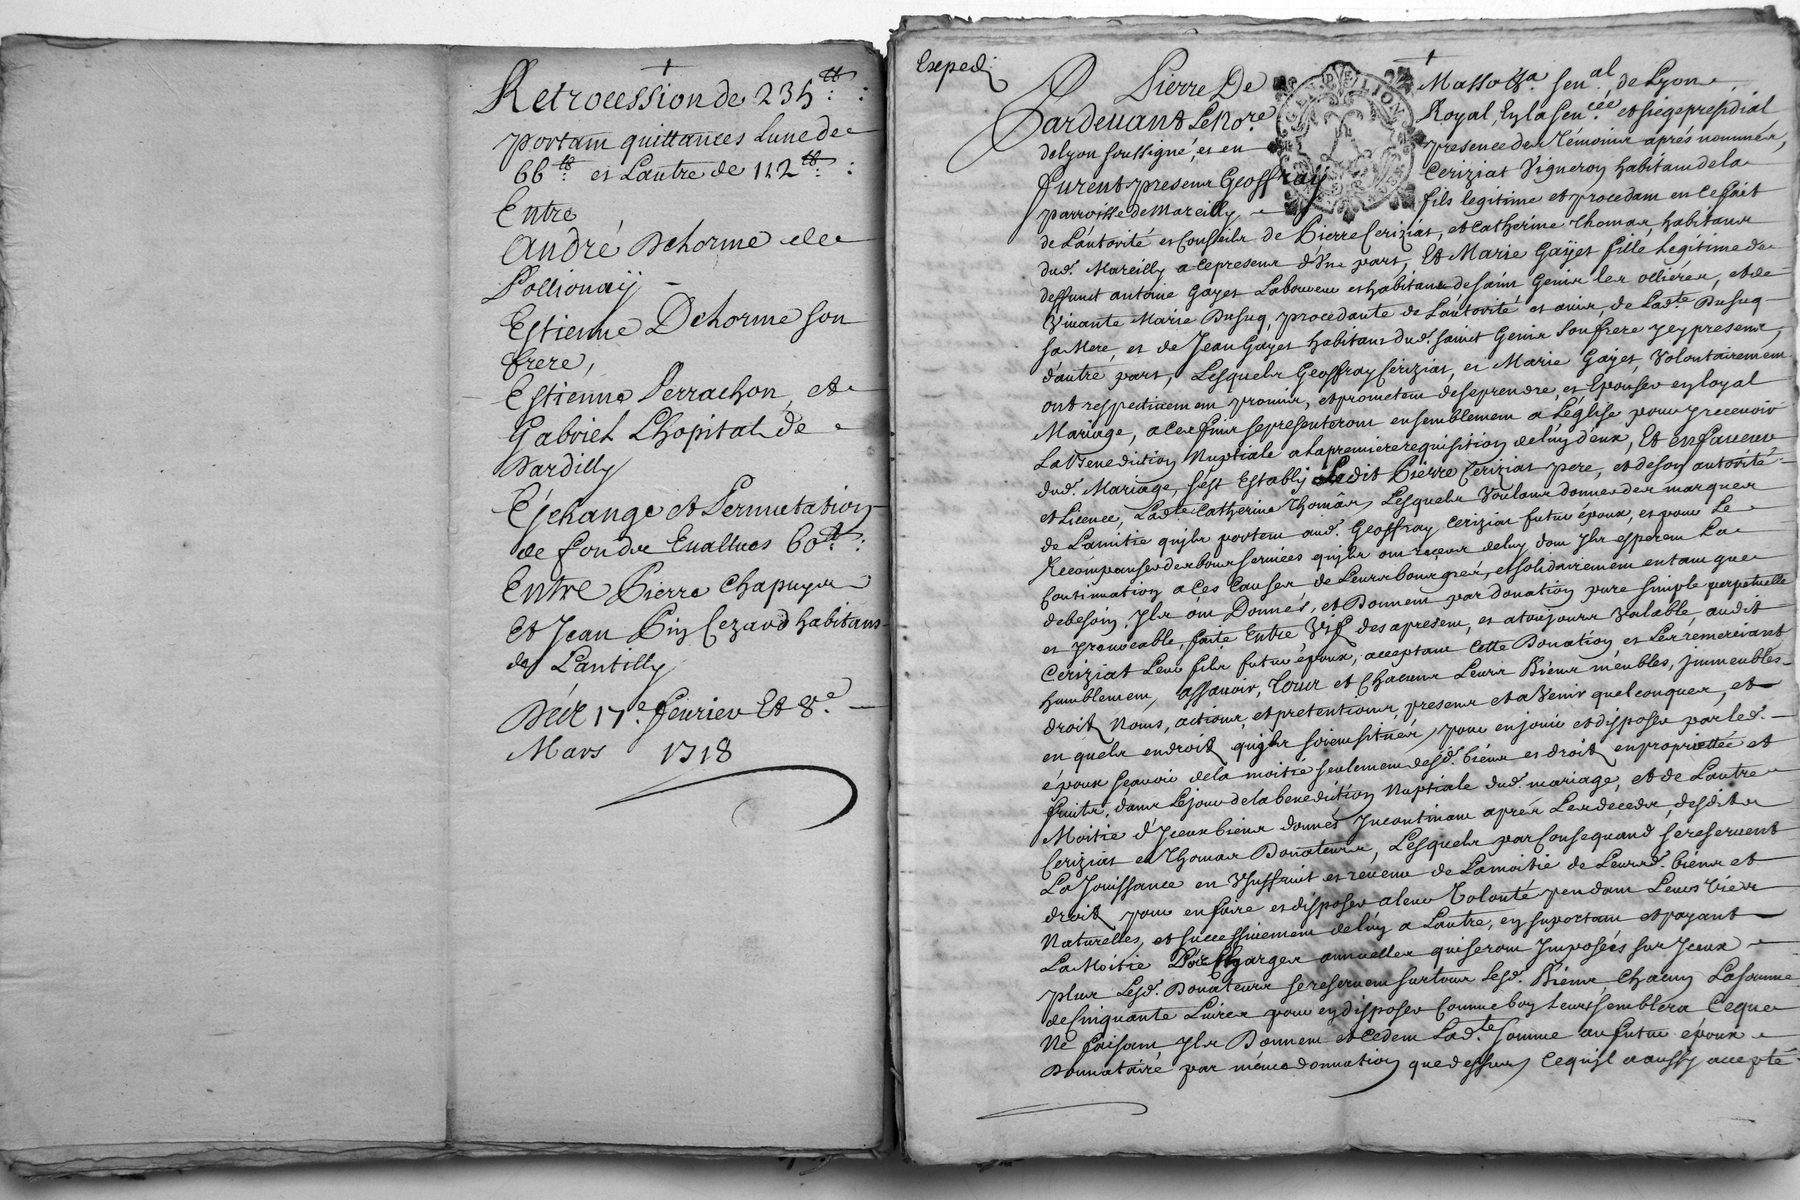 Retrocession de 235 tt:
portant quittances Lune de
66 tt: et Lautre de 112 tt:
Entre
André Dehorme de
Pollionaÿ
Estienne Dehorme son
frere,
Estienne Perrachon, et
Gabriel Lhopital de
Dardilly
Eschange et Permutation
de fondz Evallues 60 tt:
Entre Pierre Chapuys
et Jean Pin Cezard habitans
de Lantilly
Deu 17e. fevrier Et 8e.
Mars 1718
Exped:
Pierre De Masso &a Senal. de Lyon
Pardevant Le Nore. Royal, En la Sencée et siege presidial
de Lyon soussigné, et en presence des Témoins aprés nommés,
furent presens Geoffray Ceriziat Vigneron habitant de la
parroisse de Marcilly fils legitime et procedant en ce fait
de Lautorité et Conseils de Pierre Ceriziat, et Catherine Thomas habitans
dud. Marcilly a ce presens d'Vne part, Et Marie Gayet fille Legitime de
deffunct antoine Gayet Laboureur et habitant de saint Genis les ollieres, et de
Vivante Marie Dusuq, procedante de Lautorité et avis, de Ladte Dusuq
sa Mere, et de Jean Gayet habitant dud. saint Genis son frere jcy present,
d'autre part, Lesquels Geoffray Ceriziat, et Marie Gayet, Volontairement
ont respectivement promis, et promettent de se prendre, et Epouser en loyal
Mariage, a ces fins se presenteront ensemblement a L'église pour y recevoir
La Benediction Nuptiale a la premiere requisition de l'un d'eux, Et en faveur
dud. Mariage, s'est Estably Ledit Pierre Ceriziat pere, et de son autorité
et Licence, Ladte Catherine Thomas, Lesquels Voulant donner des marques
de Lamitié qu'jls portent aud. Geoffray Ceriziat futur époux, et pour Le
Recompenser des bons services qu'jls ont reçeus de luy dont jls esperent La
Continuation a Ces Causes de Leurs bon gréz, et solidairement en tant que
de besoin, Jls ont Donnés, et Donnent par donation pure simple perpetuelle
et jrrevocable, faite Entre Vif des apresent, et a toujours Valable, audit
Ceriziat Leur fils futur époux, acceptant Cette Donation et Les remerciant
humblement, assavoir, Tous et Chacuns Leurs Biens meubles, jmmeubles
droitz Noms, actions, et pretentions, presens et a Venir quelconques, et
en quels endroitz qu'jls soient situés, pour en jouir et disposer par led.
époux sçavoir de la moitié seulement desd. biens et droitz en proprieté et
fruits, dans Le jour de la benediction Nuptiale dud. mariage, et de Lautre
Moitié d'jceux biens donnés jncontinant aprés Les decedz, desdits
Ceriziat et Thomas Donateurs, Lesquels par Consequand se reservent
La Jouissance en Vsuffruit et revenu de La moitié de Leursd. biens et
droitz pour en faire et disposer a leur Volonté pendant Leurs Vies
Naturelles, et successivement de l'un a Lautre, en suportant et payant
La Moitié Des Charges annuelles qui seront jmposées sur jceux
plus Lesd. Donateurs se reservent sur tous Lesd. Biens, chacun La somme
de Cinquante Livres pour en disposer comme bon leur semblera Ce que
Ne faisant jls Donnent et cedent Ladte somme au futur époux
Donnataire par même donnation que dessus, Ce qu'jl a aussy accepté